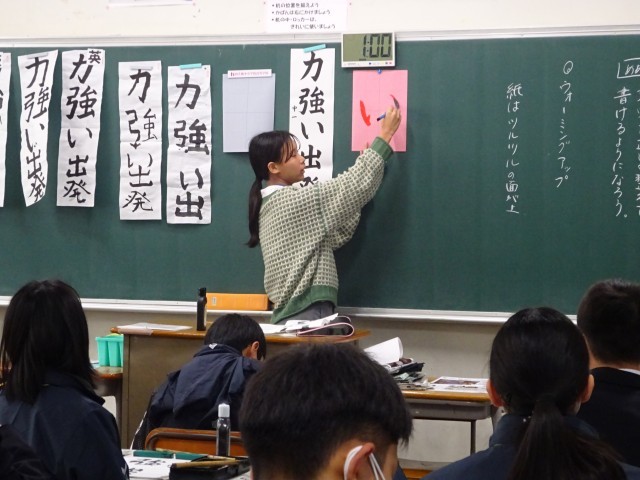 ・机の位置を揃えよう
・かばんは右にかけましょう
・机の中・ロッカーは、
きれいに使いましょう
100
書けるようになろう。
◎ウォーミングアップ
紙はツルツルの面が上
力強い出
力強い出
力強い出発
英
力強い出発
力強い出発